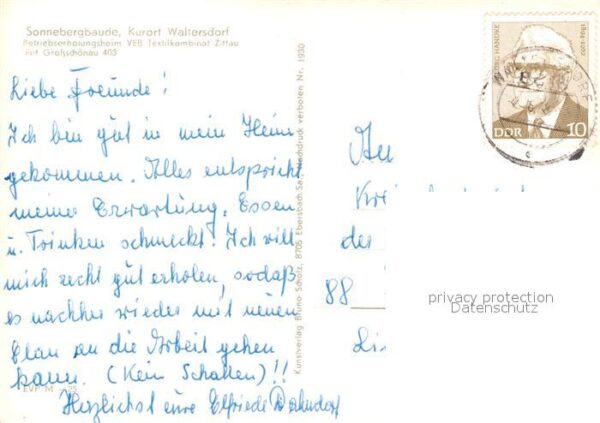 Sonnebergbaude, Kurort Waltersdorf
Betriebserholungsheim VEB Textilkombinat Zittau
Ruf Großschönau 403
Liebe Freunde!
Ich bin gut in mein Heim
gekommen. Alles entspricht
meine Erwartung. Essen
u. Trinken schmeckt. Ich will
mich recht gut erholen, sodaß
es nachher wieder mit neuen
Elan an die Arbeit gehen
kann. (Kein Schatten)!!
EVP M -,25
Herzlichst eure Elfriede
Kunstverlag Bruno Scholz, 8705 Ebersbach Sa. Nachdruck verboten Nr. 1930
An
der
88
privacy protection
Datenschutz
DDR 10